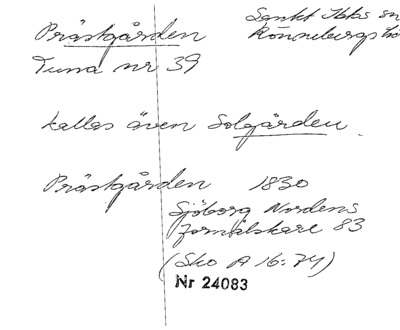 Prästgården
Sankt Ibbs sn
Rönnebergs hd
Tuna nr 39
kallas även Solgården.
Prästgården 1830
Sjöborg Nordens
fornälskare 83
(Sko A 16:74)
Nr 24083